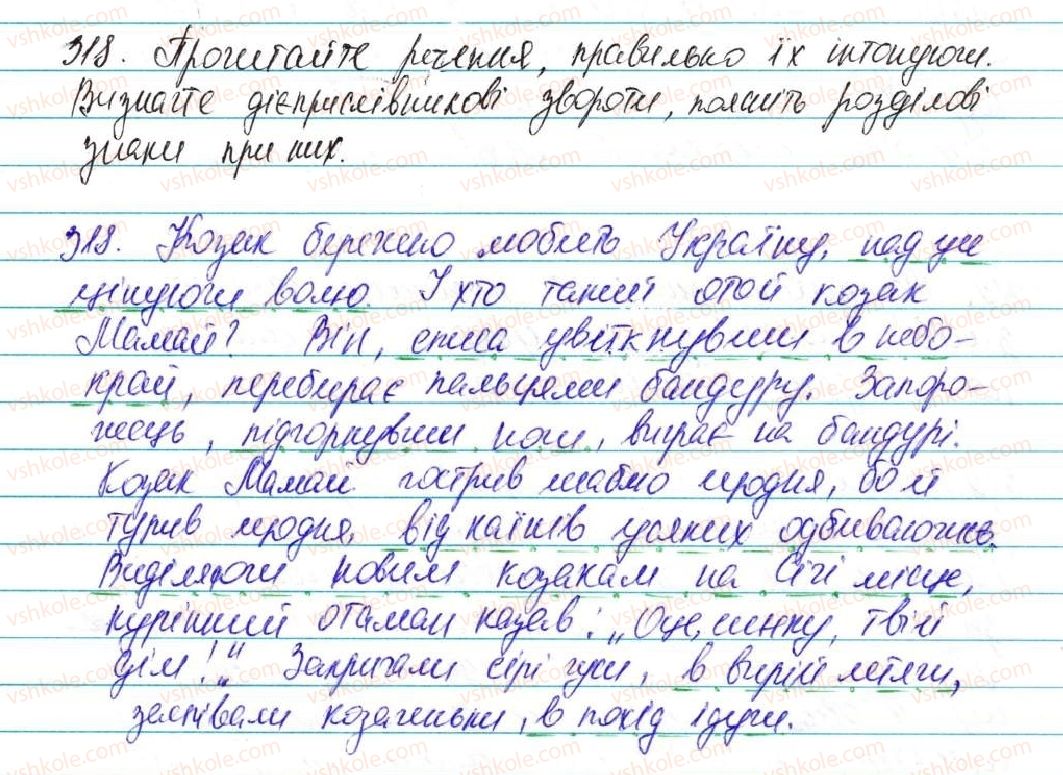 318. Прочитайте речення, правильно їх інтонуючи.
Визначте дієприслівникові звороти, поясніть розділові
знаки при них.
318. Козак бережно любить Україну, над усе
цінуючи волю. І хто такий отой козак
Мамай? Він, списа увіткнувши в небо-
край, перебирає пальцями бандуру. Запоро-
жець, підгорнувши ноги, виграє на бандурі.
Козак Мамай гострив шаблю щодня, бо й
тупив щодня, від наїздів усяких одбиваючись.
Виділяючи новим козакам на Січі місце,
курінний отаман казав: „Оце, синку, твій
дім!" Закричали сірі гуси, в вирій летячи,
заспівали козаченьки, в похід ідучи.